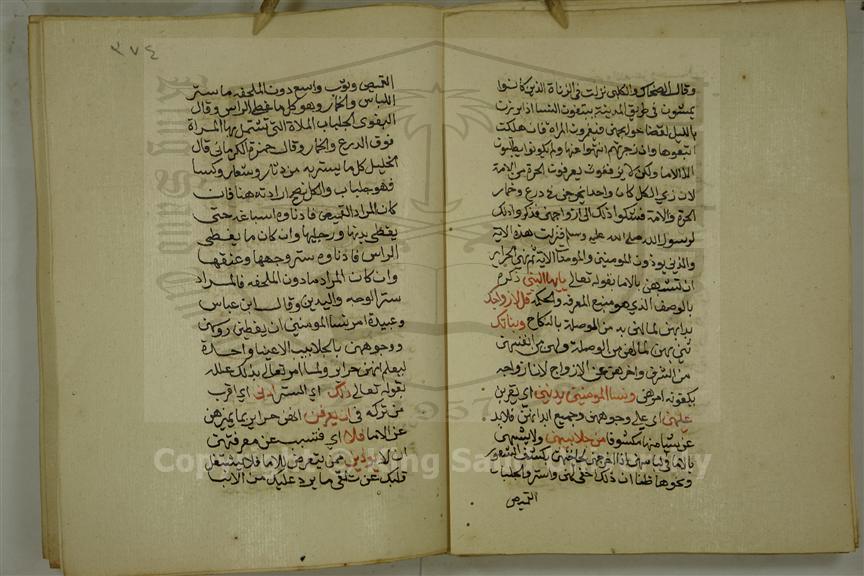 وقال الضحاك والكلبي نزلت في الزناة الذين كانوا
يمشون في طريق المدينة يتبعون النسا اذا برزن
بالليل لقضا حوايجهن فيغمزون المراة فان سكتت
اتبعوها وان زجرتهم انتهوا عنها ولم يكونوا يطلبون
الا الاما ولكن لا يعرفون الحرة من الامة
لان زي الكل كان واحدا يخرجن في درع وخمار
الحرة والامة فشكوا ذلك الى ازواجهن فذكروا ذلك
لرسول الله صلى الله عليه وسلم فنزلت هذه الاية
والذين يوذون المومنين والمومنات الاية ثم نهى الحراير
ان يتشبهن بالاما بقوله تعالى يايها النبي ذكره
بالوصف الذي هو منبع المعرفة والحكمة قل لازواجك
بدا بهن لما لهن به من الوصلة بالنكاح وبناتك
ثنى بهن لما لهن من الوصلة ولهن في انفسهن
من الشرف واخرهن عن الازواج لان ازواجه
يكفونه امرهن ونسا المومنين يدنين اي يقربن
عليهن اي على وجوههن وجميع ابدانهن فلا يدعن
شيا منها مكشوفا من جلابيبهن ولا يتشبهن
بالاما في لباسهن اذا خرجن لحاجتهن بكشف الشعور
ونحوها ظنا ان ذلك اخفى لهن واستر والجلباب
القميص
٣٧٤
القميص وثوب واسع دون الملحفة ما ستر
اللباس والخمار وهو كل ما غطى الراس وقال
البغوي الجلباب الملاة التي تشتمل بها المراة
فوق الدرع والخمار وقال حمزة الكرماني قال
الخليل كل ما يستر به من دثار وشعار وكسا
فهو جلباب والكل يصح ارادته هنا فان
كان المراد القميص فادناوه اسباغه حتى
يغطي بدنها ورجليها وان كان ما يغطي
الراس فادناوه ستر وجهها وعنقها
وان كان المراد ما دون الملحفة فالمراد
ستر الوجه واليدين وقال ابن عباس
وعبيدة امر نسا المومنين ان يغطين روسهن
ووجوههن بالجلابيب الا عينا واحدة
ليعلم انهن حراير ولما امر تعالى بذلك علله
بقوله تعالى ذلك اي الستر ادنى اي اقرب
من تركه في ان يعرفن انهن حراير بما يميزهن
عن الاما فلا اي فتسبب عن معرفتهن
ان لا يوذين ممن يتعرض للاما فلا يشتغل
قلبك عن تلقي ما يرد عليك من الانبا
Copyright © King Saud University
1957